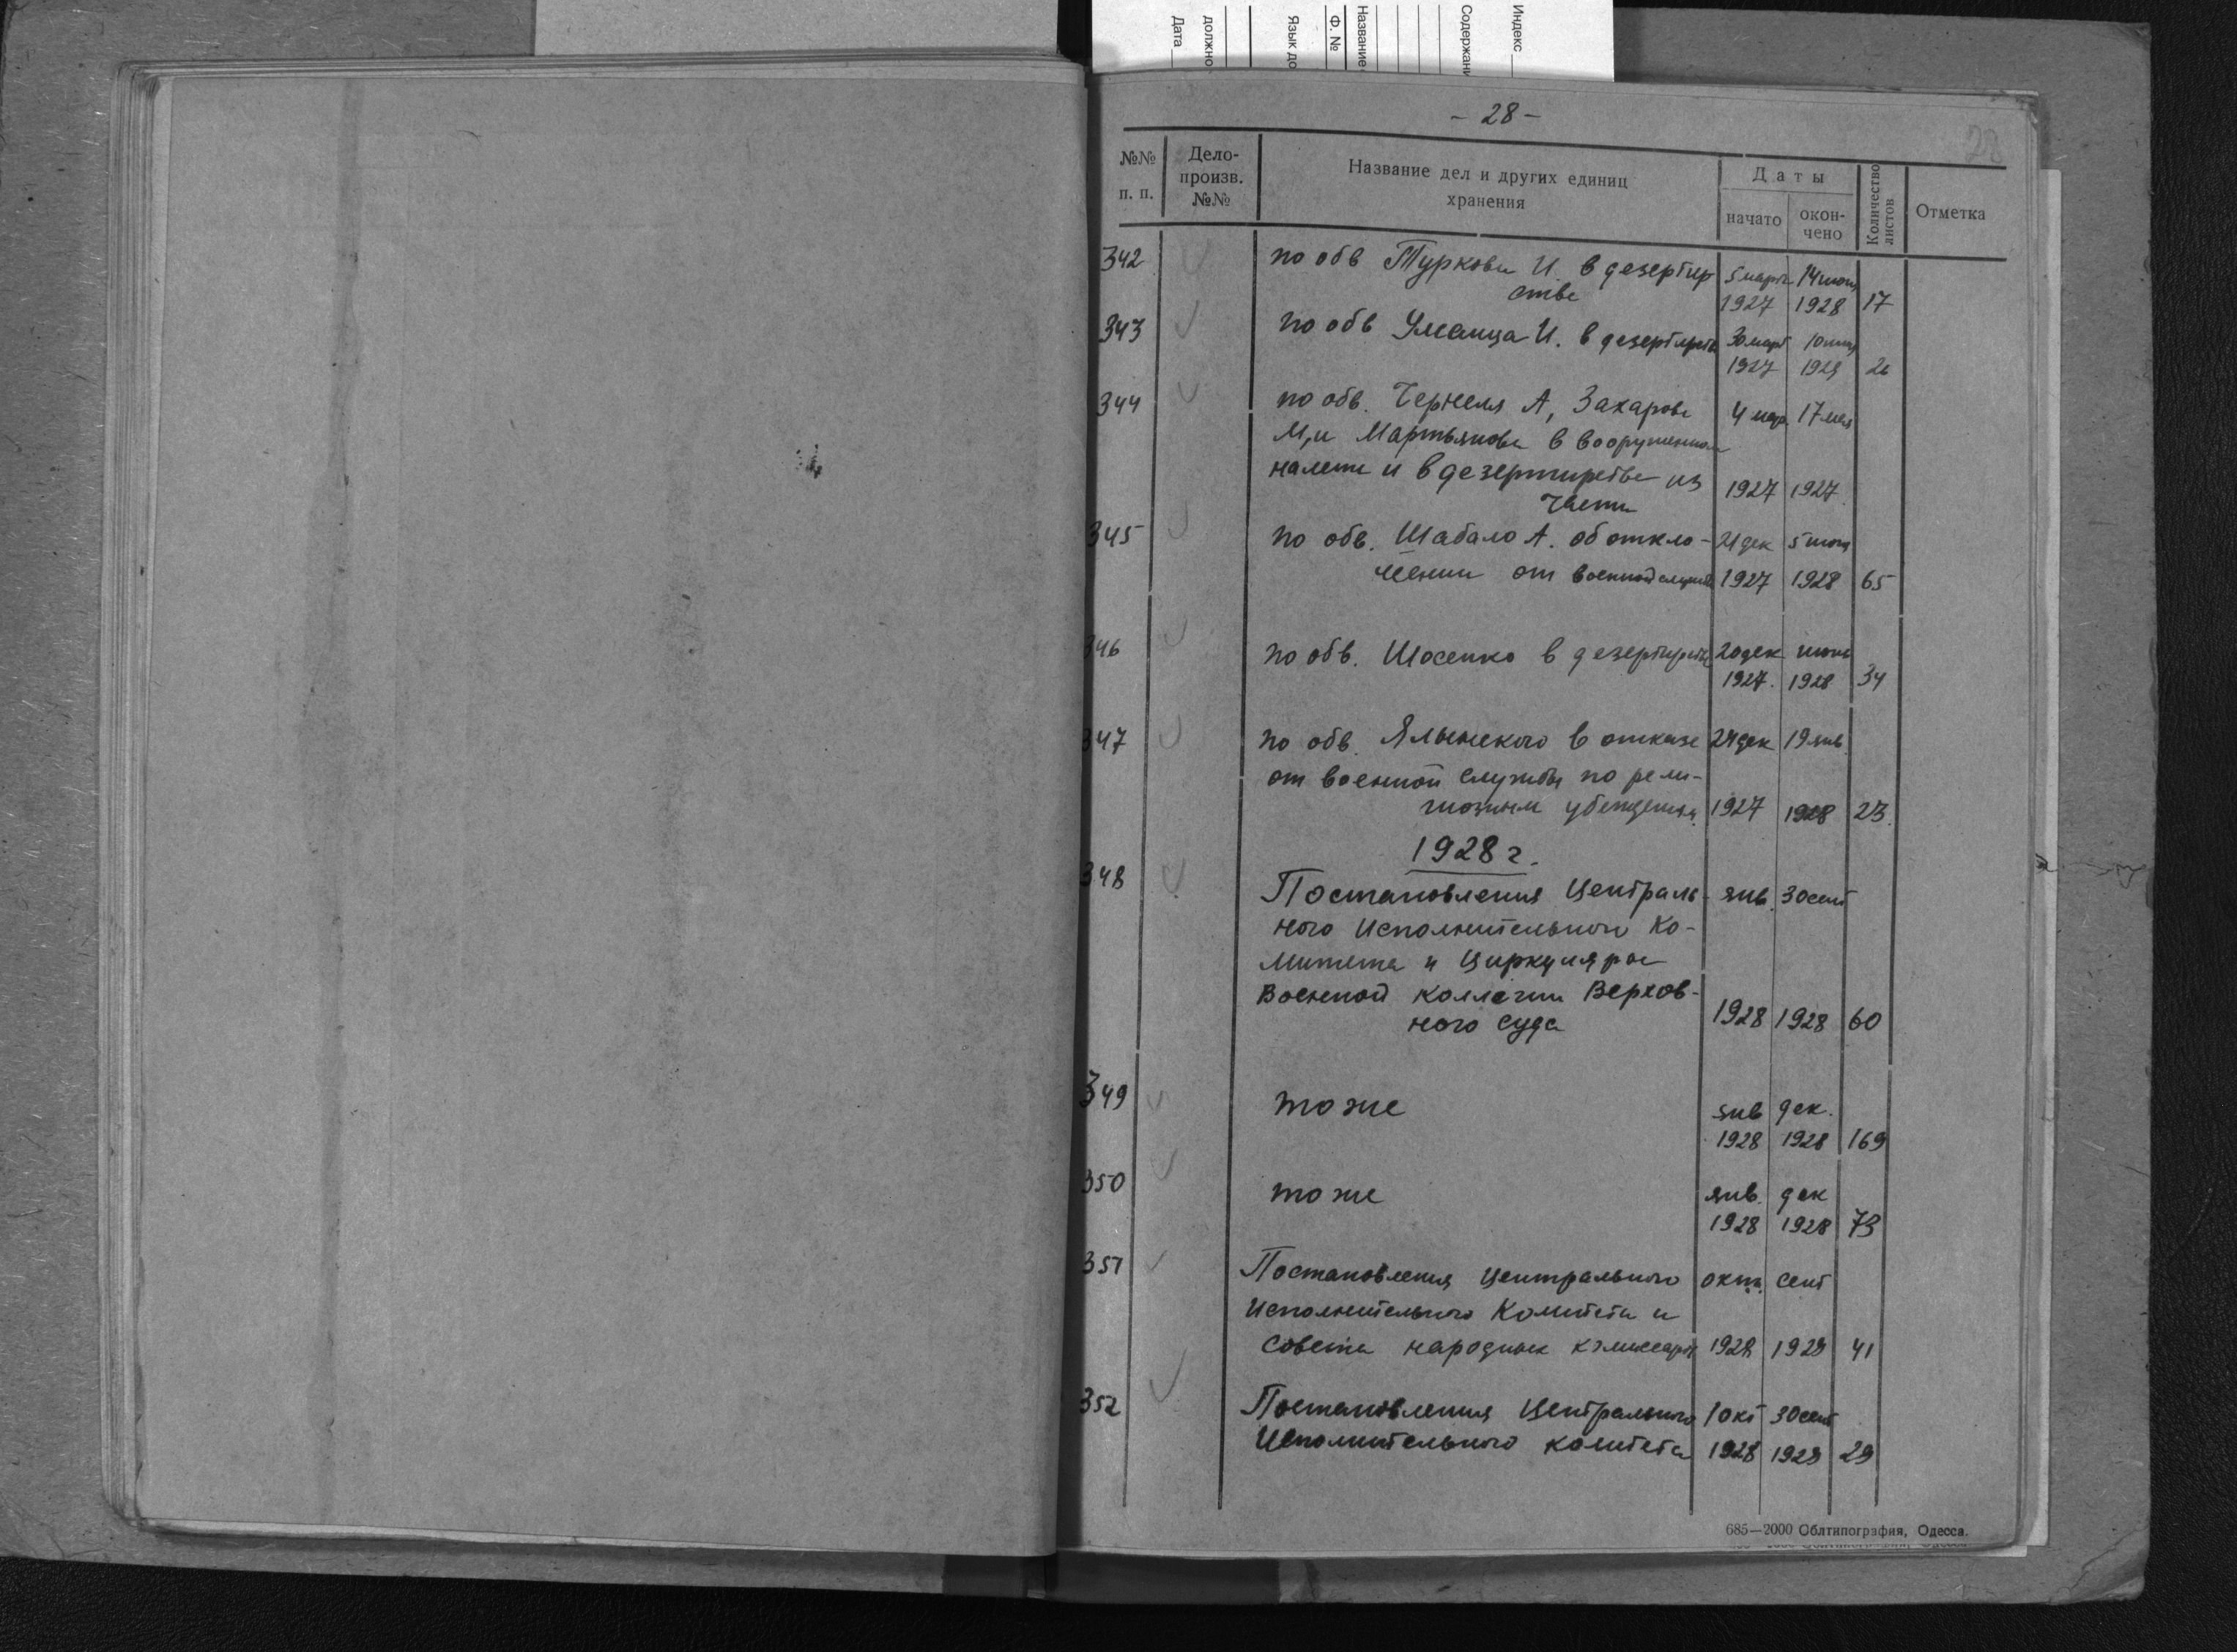 Индекс
Содержани
Название
Ф. №
Язык до
должно
Дата
- 28 -
28
№№ п. п.
Дело-произв. №№
Название дел и других единиц хранения
Даты
начато
окон-чено
Количество листов
Отметка
342 по обв Туркова И. в дезертир 5 марта 14 июня
стве 1927 1928 17
343 по обв Уманца И. в дезертирстве 30 март 10
1927 1929
344 по обв. Чернеля А, Захарова 4 мар. 17 мая
М, и Мартьянова в вооруженном
налете и в дезертирстве из 1927 1927
части
345 по обв. Шабало А. об откло- 21 дек 5 июня
нении от военной службы 1927 1928 65
346 по обв. Шосенко в дезертирстве 20 дек июнь
1927. 1928 34
347 по обв. Ялынского в отказе 24 дек 19 янв.
от военной службы по рели-
гиозным убеждениям 1927 1928 23.
1928 г.
348 Постановления Централь- янв. 30 сент
ного Исполнительного Ко-
митета и Циркуляры
Военной коллегии Верхов-
ного суда 1928 1928 60
349 тоже янв дек.
1928 1928 169
350 тоже янв. дек
1928 1928 73
351 Постановления Центрального окт. сент
Исполнительного Комитета и
Совета народных комиссаров 1928 1929 41
352 Постановления Центрального 1 окт 30 сент
Исполнительного комитета 1928 1929 29
685—2000 Облтипография, Одесса.